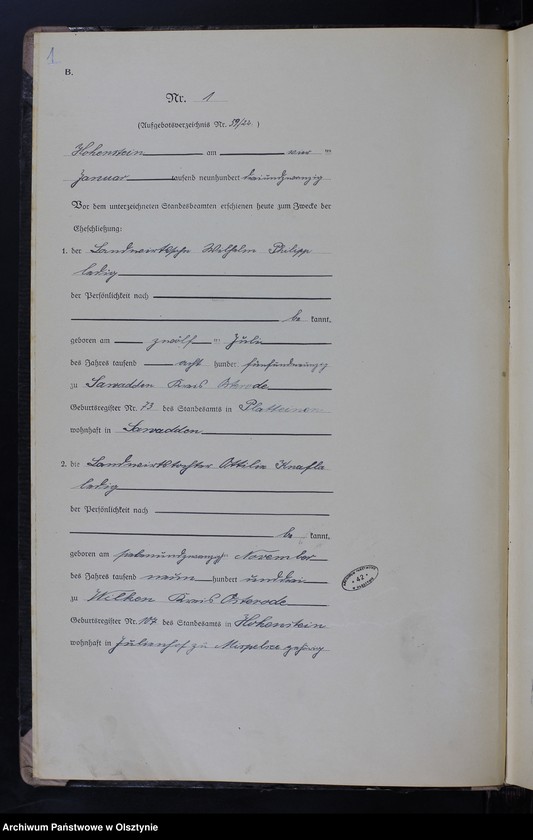 1
B.
Nr. 1
(Aufgebotsverzeichnis Nr. 59/22.)
Hohenstein am vier ten
Januar tausend neunhundert dreiundzwanzig
Vor dem unterzeichneten Standesbeamten erschienen heute zum Zwecke der
Eheschließung:
1. der Landwirtssohn Wilhelm Philipp
ledig
der Persönlichkeit nach
be kannt,
geboren am zwölf ten Juli
des Jahres tausend acht hundert fünfundneunzig
zu Sawadden Kreis Osterode
Geburtsregister Nr. 73 des Standesamts in
wohnhaft in Sawadden
2. die Landwirtstochter Ottilie Knafla
ledig
der Persönlichkeit nach
be kannt,
geboren am siebenundzwanzigsten November
des Jahres tausend neun hundert unddrei
zu Wilken Kreis Osterode
Geburtsregister Nr. des Standesamts in Hohenstein
wohnhaft in Julienhof zu gehörig
42
Archiwum Państwowe w Olsztynie